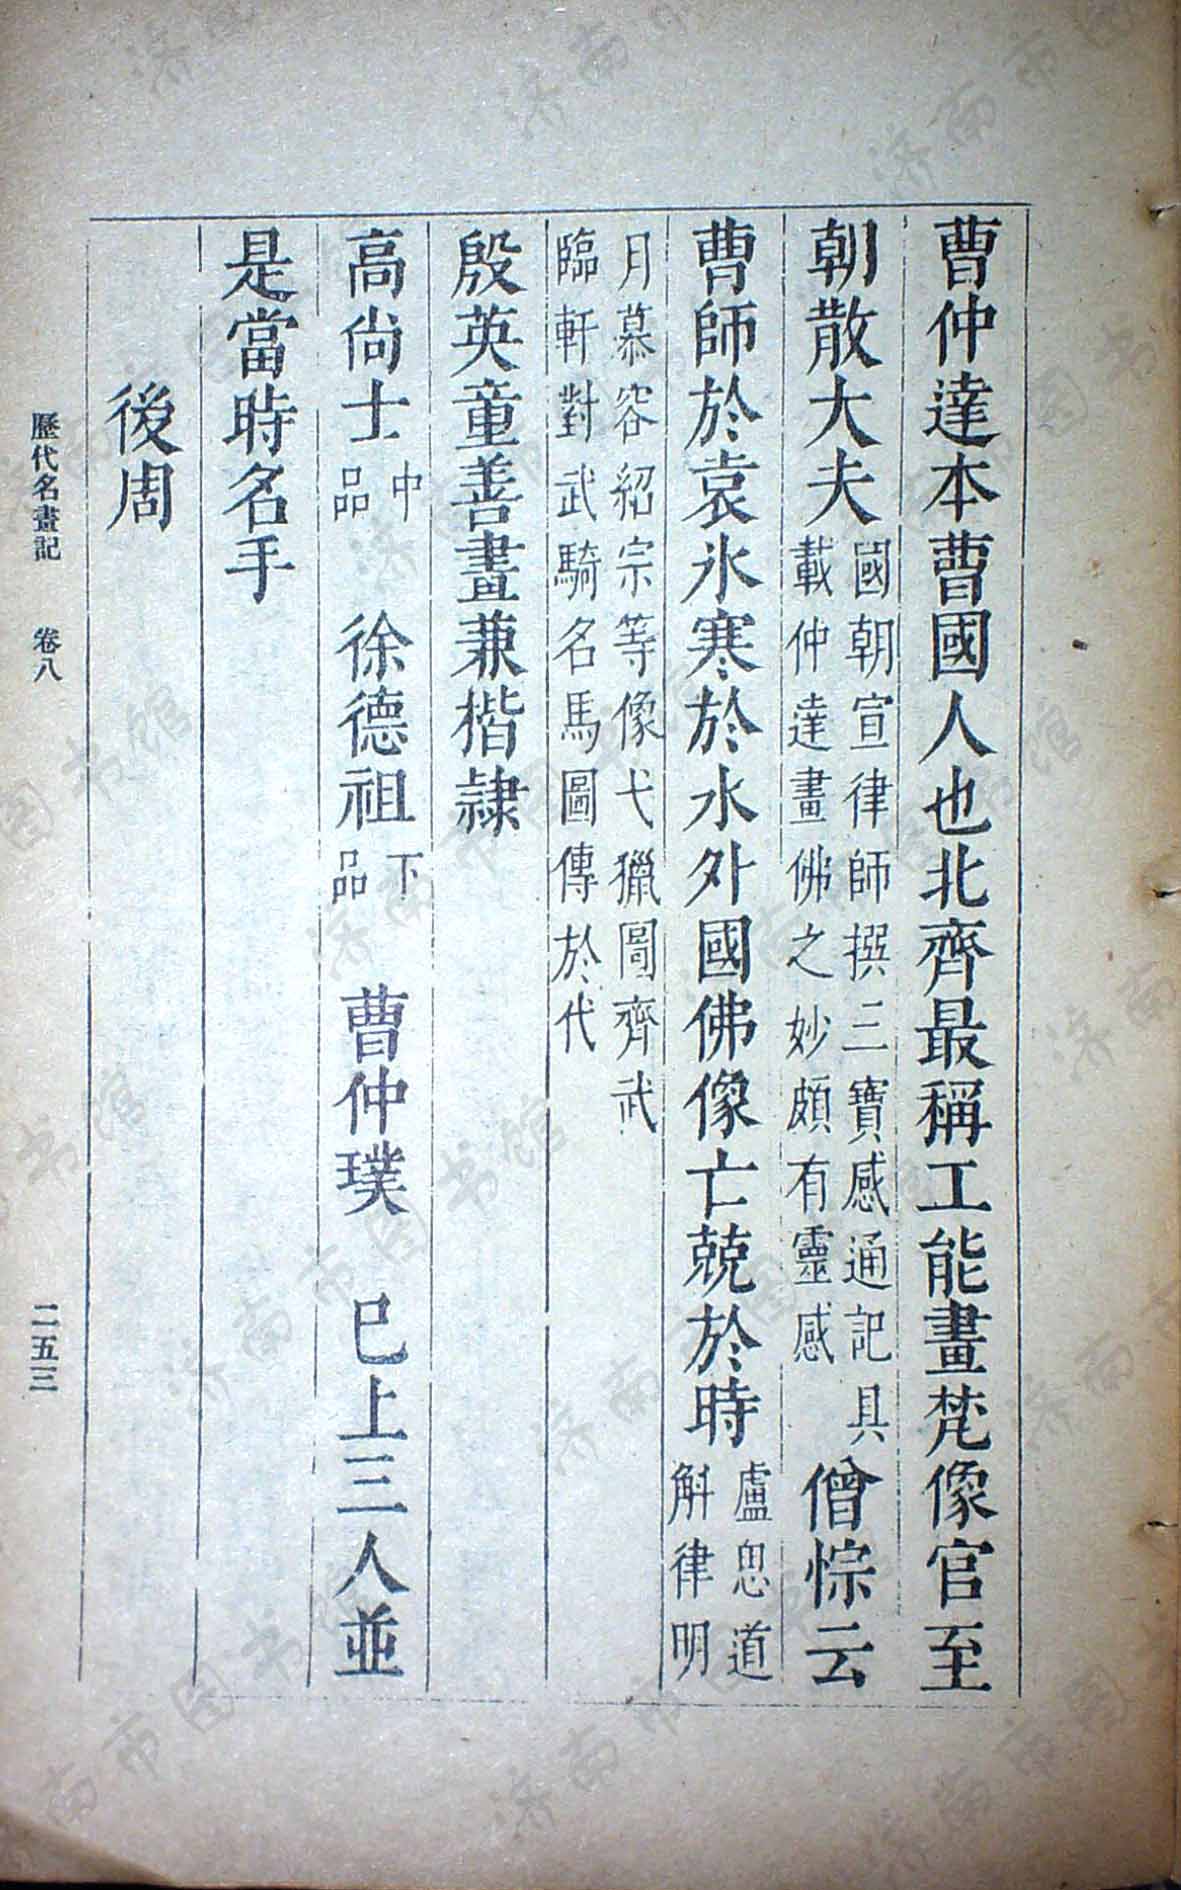 曹仲達本曹國人也北齊最稱工能畫梵像官至
朝散大夫國朝宣律師撰三寶感通記具載仲達畫佛之妙頗有靈感僧悰云
曹師於袁冰寒於水外國佛像亡兢於時盧思道斛律明
月慕容紹宗等像弋獵圖齊武臨軒對武騎名馬圖傳於代
殷英童善畫兼楷隸
高尚士中品 徐德祖下品 曹仲璞 已上三人並
是當時名手
後周
歷代名畫記 卷八 二五三
济南市图书馆